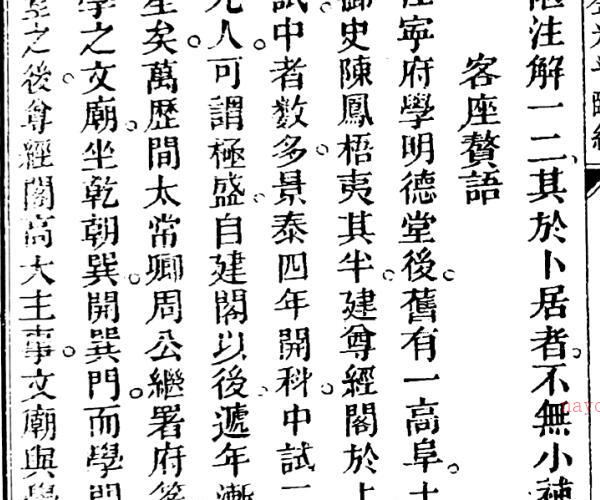 注解一二其於卜居者。不無小補
客座贅語
寧府學明德堂後。舊有一高阜。
御史陳鳳梧夷其半。建尊經閣於上
試中者數多。景泰四年開科。中試
人。可謂極盛。自建閣以後。遞年漸
矣。萬歷間太常卿周公繼署府
學之文廟。坐乾朝巽。開巽門。而學
之後。尊經閣高大主事。文廟與學
nayo